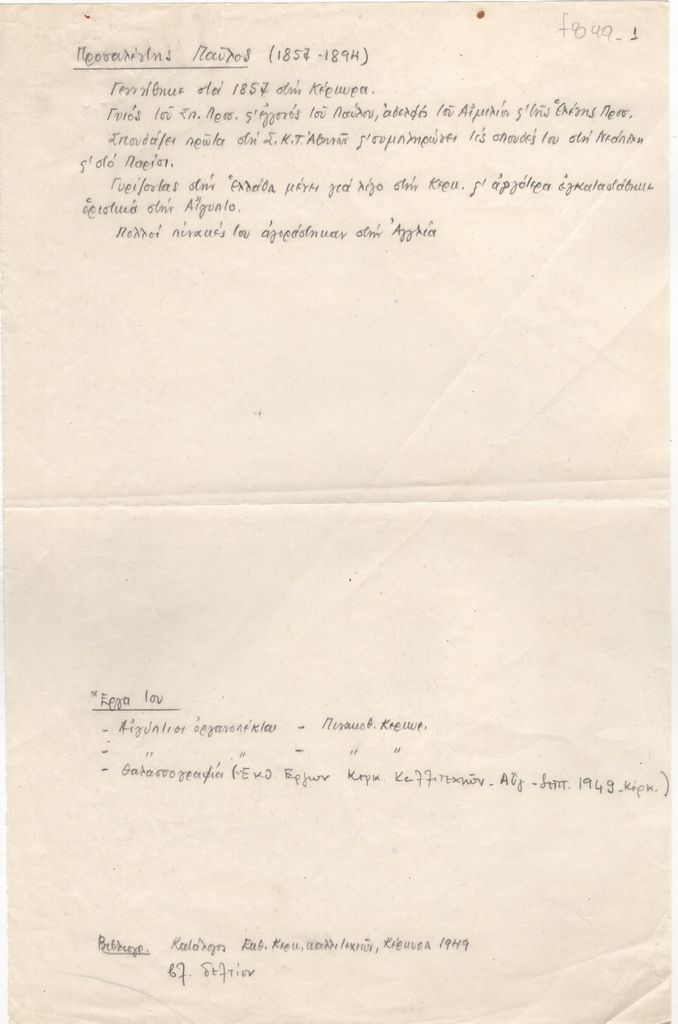 f899-1
Προσαλέντης Παῦλος (1857-1894)
Γεννήθηκε στά 1857 στήν Κέρκυρα.
Γυιός τοῦ Σπ. Προσ. ϛ' ἐγγονός τοῦ Παύλου, ἀδελφός τοῦ Αἰμιλίου ϛ' τῆς Ἑλένης Προσ.
Σπουδάζει πρῶτα στή Σ.Κ.Τ. Ἀθηνῶν ϛ' συμπληρώνει τίς σπουδές του στή Νεάπολη
ϛ' στό Παρίσι.
Γυρίζοντας στήν Ἑλλάδα μένει γιά λίγο στήν Κερκ. ϛ' ἀργότερα ἐγκαταστάθηκε
ὁριστικά στήν Αἴγυπτο.
Πολλοί πίνακές του ἀγοράστηκαν στήν Ἀγγλία
Ἔργα του
- Αἰγύπτιοι ὀργανοπέκται - Πινακοθ. Κερκυρ.
- " " - " "
- Θαλασσογραφία (Ἐκθ. Ἔργων Κερκ. Καλλιτεχνῶν - Αὔγ - Σεπτ. 1949 - Κέρκ.)
Βιβλιογρ. Κατάλογος Ἐκθ. Κερκ. καλλιτεχνῶν, Κέρκυρα 1949
βλ. δελτίον